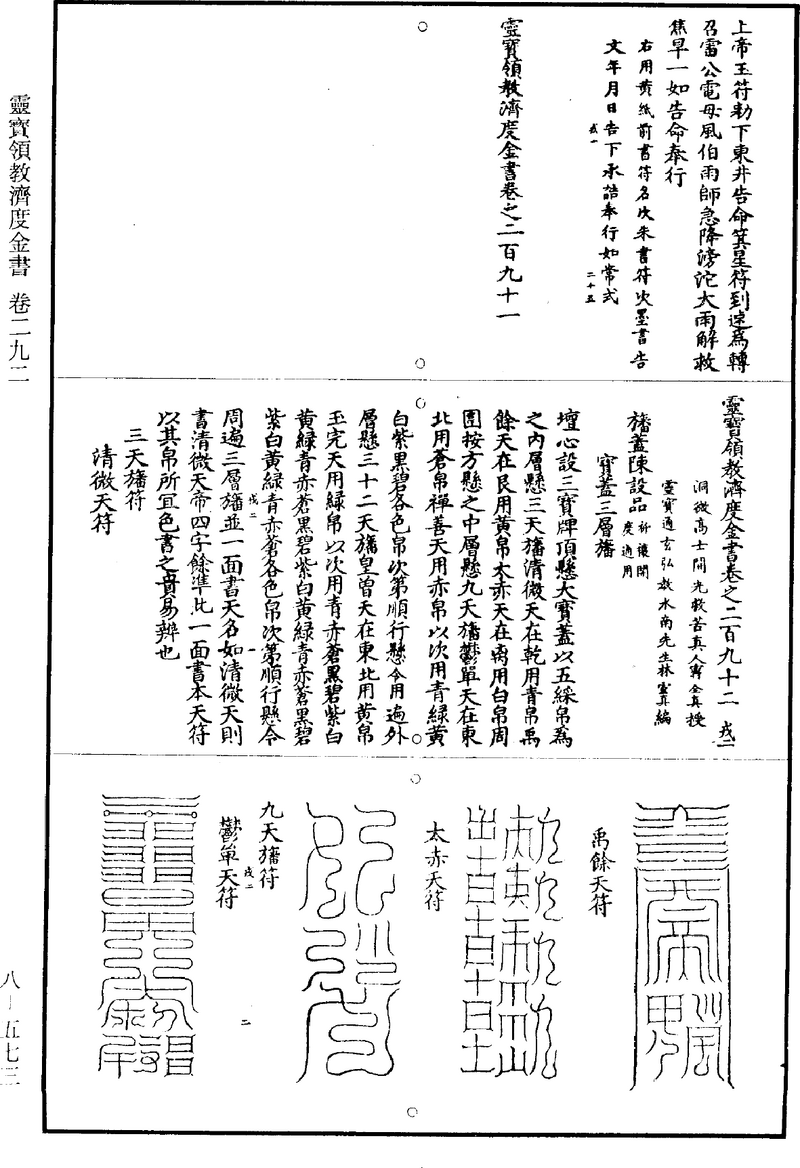 靈寶領教濟度金書 卷二九二
八－五七三
上帝玉符勑下東井告命箕星符到速爲轉
召雷公電母風伯雨師急降滂沱大雨解救
焦旱一如告命奉行
右用黄紙前書符名次朱書符次墨書告
文年月日告下承誥奉行如常式
戎一
二十五
靈寶領教濟度金書卷之二百九十一
靈寶領教濟度金書卷之二百九十二
戎二
洞微高士開光救苦真人甯全真授
靈寶通玄弘教水南先生林靈真編
旛蓋陳設品
祈禳開度通用
寶蓋三層旛
壇心設三寶牌頂懸大寶蓋以五綵帛爲
之内層懸三天旛清微天在乾用青帛禹
餘天在艮用黄帛太赤天在离用白帛周
圍按方懸之中層懸九天旛鬱單天在東
北用蒼帛禪善天用赤帛以次用青緑黄
白紫黑碧各色帛次第順行懸令用遍外
層懸三十二天旛皇曾天在東北用黄帛
玉完天用緑帛以次用青赤蒼黑碧紫白
黄緑青赤蒼黑碧紫白黄緑青赤蒼黑碧
紫白黄緑青赤蒼各色帛次第順行懸令
戎二
一
周遍三層旛並一面書天名如清微天則
書清微天帝四字餘準此一面書本天符
以其帛所宜色書之貴易辨也
三天旛符
清微天符
禹餘天符
太赤天符
九天旛符
戎二
二
鬱單天符